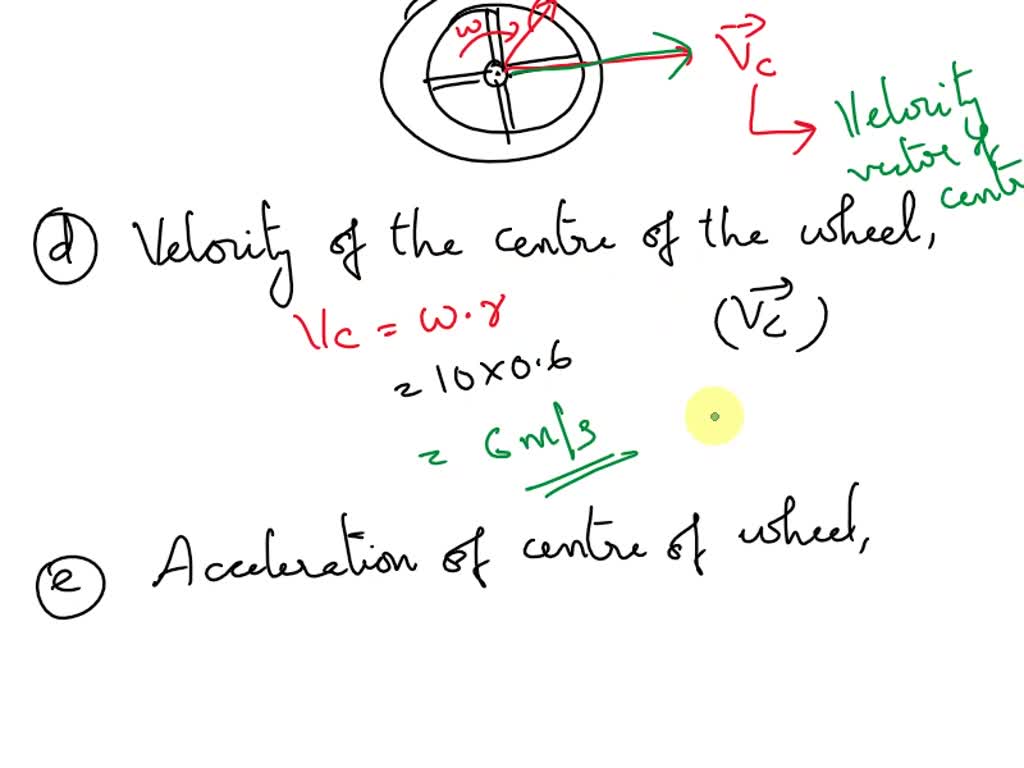 ω
V⃗c
Velocity
vector of
cent
(d) Velocity of the centre of the wheel,
Vc = ω.r (V⃗c)
= 10×0.6
= 6 m/s
(e) Acceleration of centre of wheel,